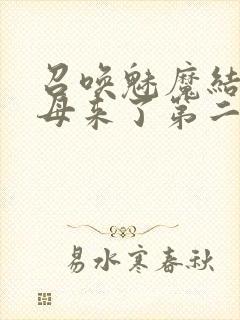 召唤魅魔结
母来了第二
易水寒春秋